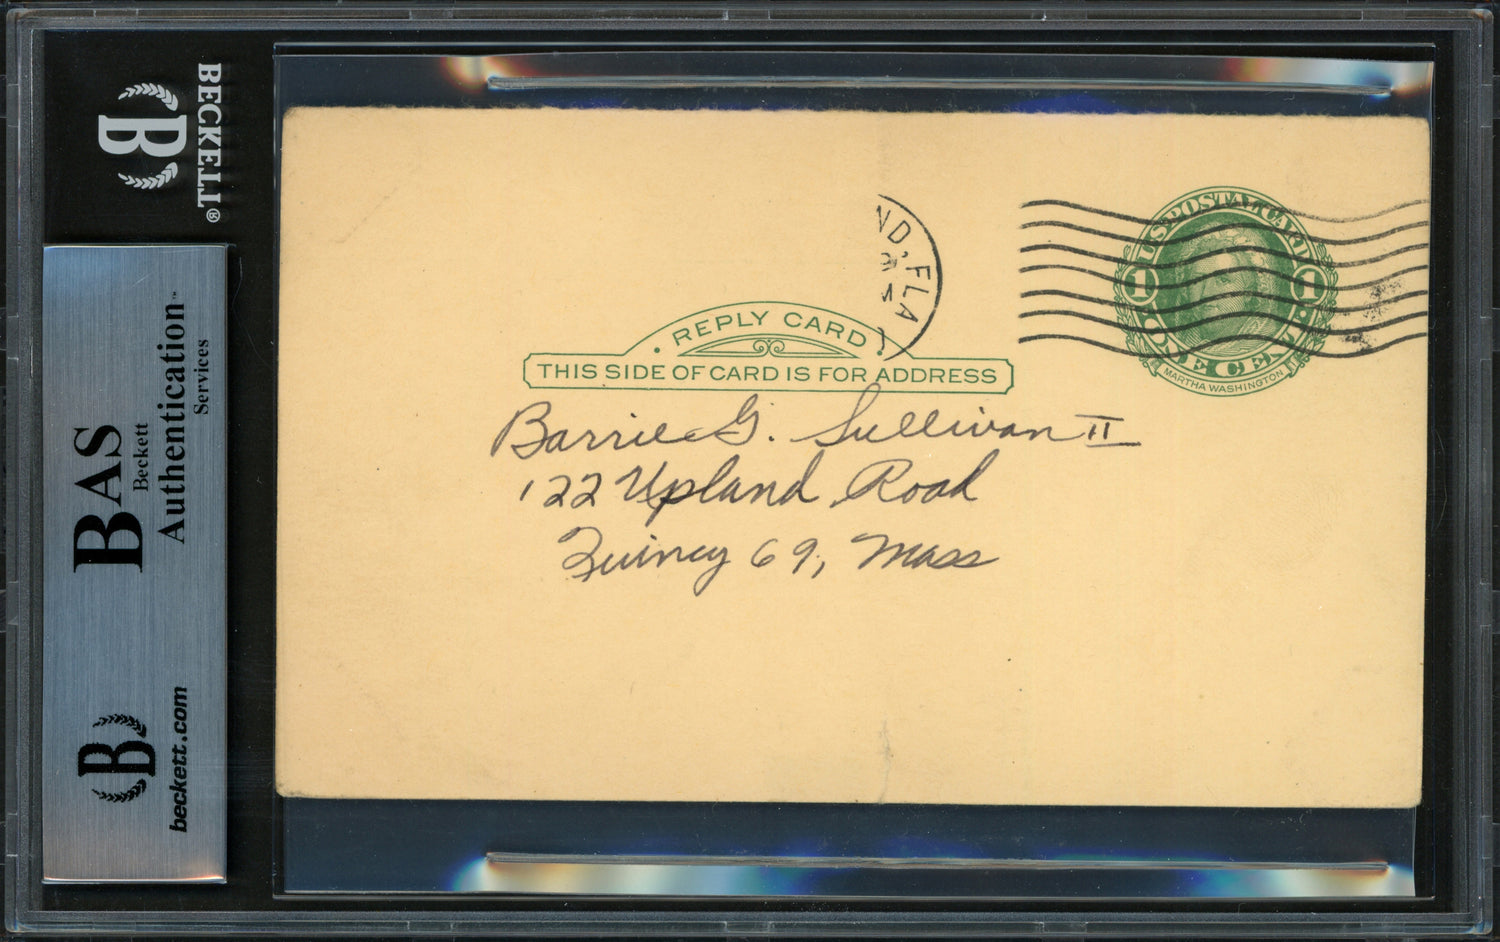 BECKETT®
B
BAS
Beckett
Authentication™
Services
B
beckett.com
ND, FLA
U.S. POSTAL CARD
1 1
ONE CENT
MARTHA WASHINGTON
REPLY CARD
THIS SIDE OF CARD IS FOR ADDRESS
Barrie G. Sullivan II
122 Upland Road
Quincy 69, Mass